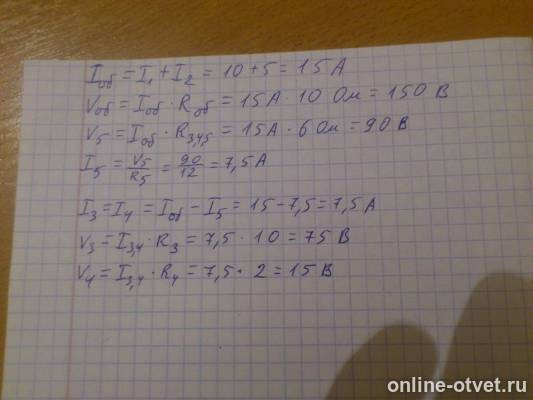 Iоб = I1 + I2 = 10 + 5 = 15 А
Vоб = Iоб · Rоб = 15А · 10 Ом = 150 В
V5 = Iоб · R3,4,5 = 15А · 6 Ом = 90 В
I5 = V5/R5 = 90/12 = 7,5 А
I3 = I4 = Iоб - I5 = 15 - 7,5 = 7,5 А
V3 = I3,4 · R3 = 7,5 · 10 = 75 В
V4 = I3,4 · R4 = 7,5 · 2 = 15 В
online-otvet.ru